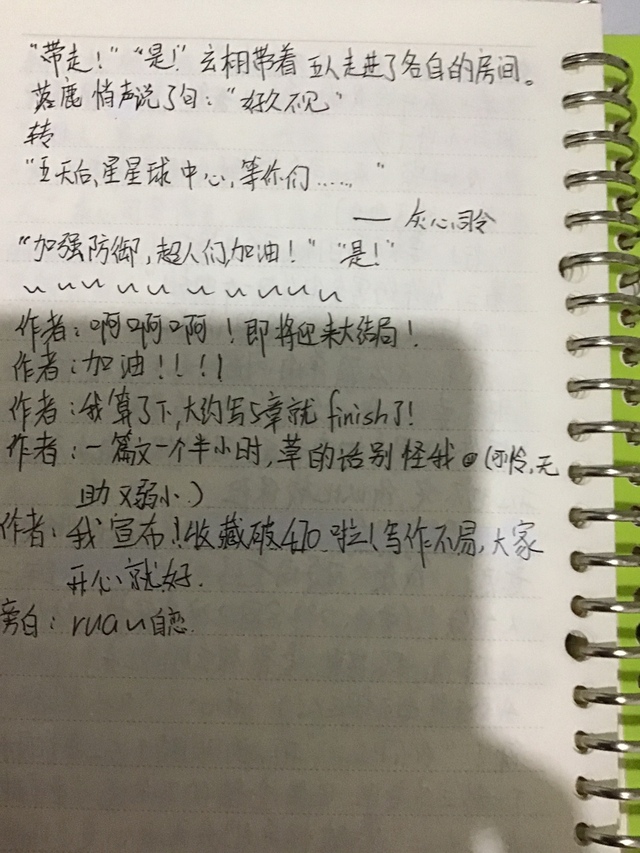 "带走！" "是！" 玄相带着五人走进了各自的房间。
落鹿悄声说了句："好久不见"
转
"五天后，星星球中心，等你们……"
—— 灰心司令
"加强防御，超人们，加油！" "是！"
作者：啊啊啊！即将迎来大结局！
作者：加油！！！！
作者：我算了下，大约写5章就finish了！
作者：一篇文一个半小时，草的话别怪我（可怜，无
助又弱小）
作者：我宣布！收藏破470啦！写作不易，大家
开心就好.
旁白：ruan自恋.